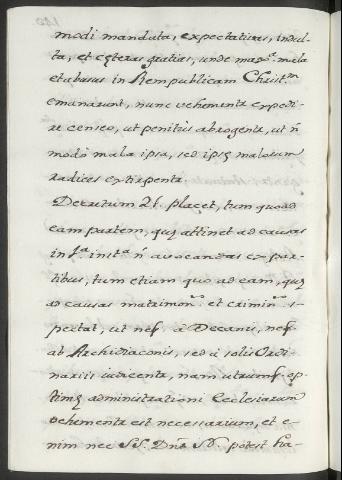 modi mandata, expectativas, indul-
ta, et cęteras gratias, unde magna mala
et abusus in Rempublicam Christm
emanarunt, nunc vehementer expedi-
re censeo, ut penitus abrogentur, ut ñ
modo mala ipsa, sed ipsę malorum
radices extirpentur.
Decretum 21. placet, tum quoad
eam partem, quę attinet ad causas
in Ja. insta. ñ avocandas ex par-
tibus, tum etiam quo ad eam, quę
ad causas matrimon. et crimin. s-
pectat, ut neq. à Decanis, neq.
ab Archidiaconis, sed à solis Ordi-
nariis iudicentur, nam utrumq. op-
timę administrationi Ecclesiarum
vehementer est necessarium, et e-
nim nec SS. Dnũs N. potest tra-